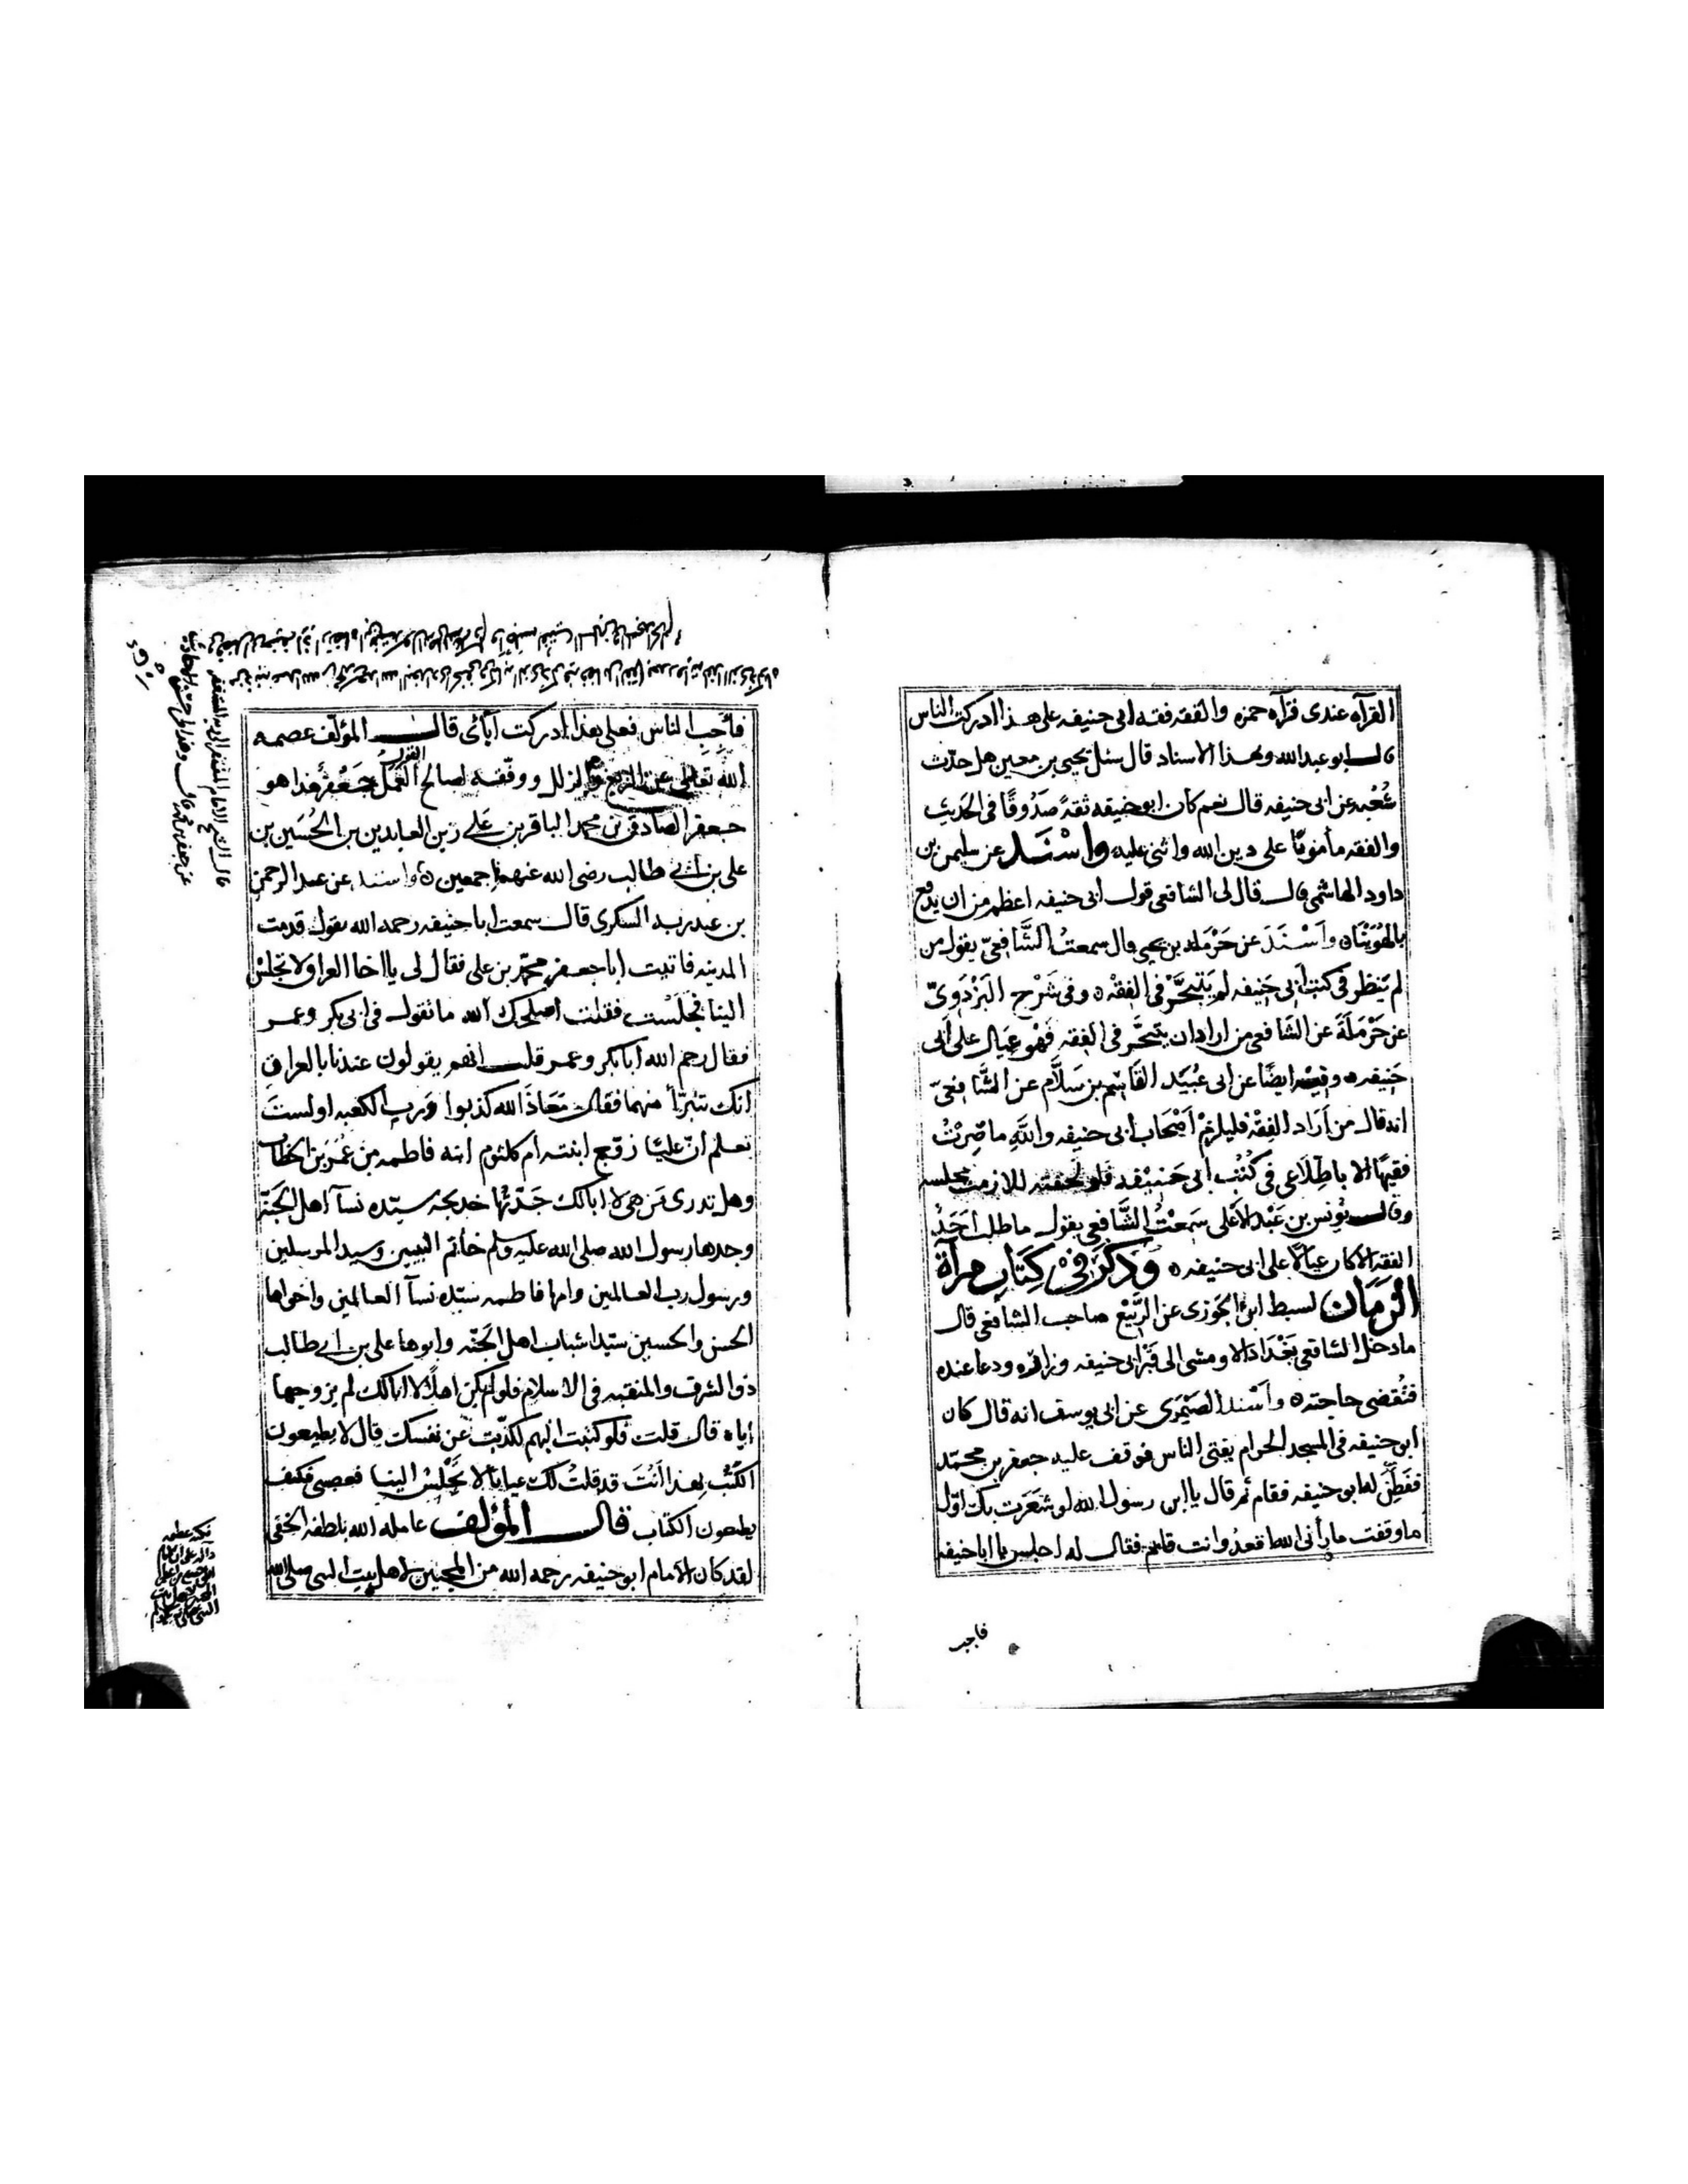 القرآه عندى قرآه حمزه والفقه فقه ابى حنيفه على هذا ادركت الناس
قال ابو عبدالله وبهذا الاسناد قال سئل يحيى بن معين هل حدّث
شُعْبه عن ابى حنيفه قال نعم كان ابو حنيفه ثقةً صَدُوقًا فى الحديث
والفقه مأمونًا على دين الله واثنى عليه واسْنَد عن سليمن بن
داود الهاشمى قال قال لى الشافعى قول ابى حنيفه اعظم من ان يدفع
بالهُوَيْنَا ه وأسْنَدَ عن حَرْمله بن يحيى قال سمعتُ الشَّافعىّ يقول من
لم يَنظر فى كتب أبى حَنيفه لم يَتبحَّرْ فى الفقْه ه وفى شَرْح البَزْدَوِىّ
عن حَرْمَلَةَ عن الشَافعى من اراد ان يتبحَّر فى الفقه فَهُو عِيَال على أبى
حَنيفه ه وفيه ايضًا عن ابى عُبَيد القَاسِم بن سَلاَّم عن الشَّافعىّ
انه قال من أرَاد الفِقْه فليلزم أصْحَاب ابى حنيفه واللهِ ما صِرْتُ
فقيهًا الا باطِلَاعى فى كُتُب ابى حَنيْفه فلو لحقته للازمت مجلسه
وقال يُونس بن عَبْد الاَعْلى سَمعْتُ الشَّافعى يقول ما طلب احَدٌ
الفقه الا كان عيَالًا على ابى حنيفه ه وَذَكَرَ فىْ كِتَابِ مرآة
الزمَان لسبط ابن الجَوزى عن الرَّبِيْع صاحب الشافعى قال
ما دخل الشافعى بَغْدَاد الا ومشى الى قَبْر ابى حنيفه وزاره ودعا عنده
فتُقضى حاجته ه وأسْند الصَّيْمَرى عن ابى يوسف انه قال كان
ابو حنيفه فى المسجد الحرام يفتى الناس فوقف عليه جعفر بن محمّد
ففَطِنَ له ابو حنيفه فقام ثم قال يا ابن رسول الله لو شَعَرت بك اوّل
ما وقفت ما رأنى الله اقعدُ وانت قايم فقال له اجلس يا ابا حنيفه
فاجب
فأجب الناس فعلى هذا ادركت آبائى قال المؤلف عصمه
الله تعالى عن الزيغ والزلل ووفقه لصالح القول العَمَل جَعْفر هذا هو
جعفر الصادق بن محمد الباقر بن على زين العابدين بن الحُسَين بن
على بن أبى طالب رضى الله عنهم اجمعين ه واسند عن عبد الرحمن
بن عبد ربه السكرى قال سمعت ابا حنيفه رحمه الله يقول قدمت
المدينه فاتيت ابا جعفر محمّد بن على فقال لى يا اخا العراق لا تجلس
الينا فجَلَسْت فقلت اصلحك الله ما تقول فى ابى بكر وعمر
فقال رحم الله ابا بكر وعمر قلت انهم يقولون عندنا بالعراق
انك تتبرّأ منهما فقال مَعَاذَ الله كذبوا وَرب الكعبه اولستَ
تعلم انّ عليًّا زوّج ابنته ام كلثوم ابنه فاطمه من عُمَر بن الخطاب
وهل تدرى مَن هى لا ابا لك جَدّتُها خديجه سيّده نسآ اهل الجَنّة
وجدها رسول الله صلى الله عليه وسلم خاتم النبيين وسيد المرسلين
ورسول رب العالمين وامها فاطمه سيّده نسآ العالمين واخواها
الحسن والحسين سيّدا شباب اهل الجنّه وابوها على بن ابى طالب
ذو الشرف والمنقبه فى الاسلام فلو لم يكن اهلًا لا ابا لك لم يزوجها
اياه قال قلت فلو كتبت اليهم لكذّبت عن نفسك قال لا يطيعون
الكُتُب هذا أنْتَ قد قلتُ لك عيانًا لا تجْلِسْ الينا فعصى فكيف
يطيعون الكتاب قال المؤلف عامله الله بلطفه الخفى
لقد كان الامام ابو حنيفه رحمه الله من المحبين لاهل بيت النبى صلى الله